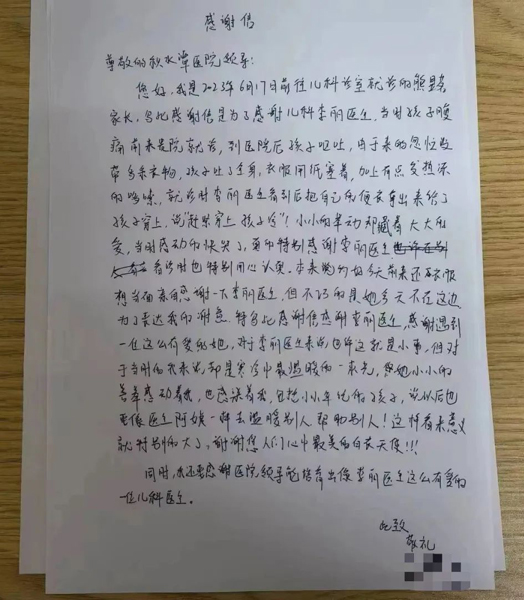 感谢信
尊敬的积水潭医院领导:
您好,我是2023年6月17日前往儿科诊室就诊的熊
家长,写此感谢信是为了感谢儿科李丽医生,当时孩子腹
痛前来医院就诊,到医院后孩子呕吐,由于来的急忙没
带多余衣物,孩子吐了全身,衣服用纸塞着,加上有点发热
的咳嗽,就诊时李丽医生看到后把自己的便衣拿出来给了
孩子穿上,说“赶紧穿上孩子冷”!小小的举动却藏着大大的
爱,当时感动的快哭了,真的特别感谢李丽医生
看诊时也特别用心认真。本来我们今天前来还衣服
想当面亲自感谢一下李丽医生,但不巧的是她今天不在这边
为了表达我的谢意,特写此感谢信感谢李丽医生,感谢遇到
一位这么有爱的她,对于李丽医生来说也许这就是小事,但对
于当时的我来说,却是寒冷中最温暖的一束光,她小小的
善举感动着我,也感染着我,包括小小年纪的孩子,说以后也
要像医生阿姨一样去温暖别人帮助别人!这样看来意义
就特别的大了,谢谢您人们心中最美的白衣天使!!!
同时,我还要感谢医院领导能培育出像李丽医生这么有爱的
一位儿科医生。
此致
敬礼